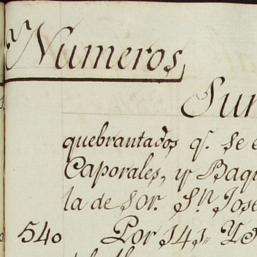 Numeros
Sur
quebrantados q.e se e
Caporales, y Baq
la de Sor. S.n Jose
540 Por 141. Y